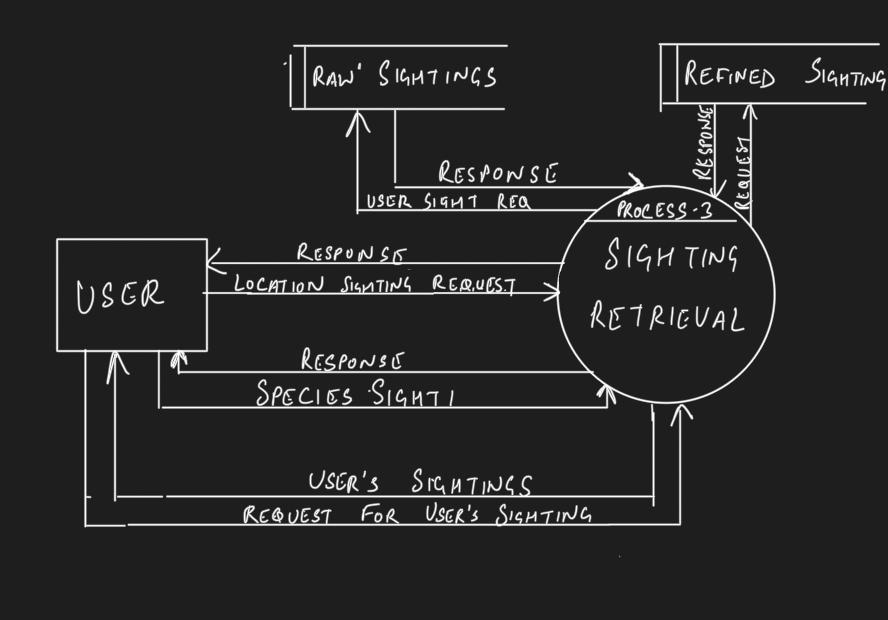 RAW' SIGHTINGS
REFINED SIGHTING
RESPONSE
REQUEST
RESPONSE
USER SIGHT REQ
PROCESS-3
SIGHTING
RETRIEVAL
RESPONSE
LOCATION SIGHTING REQUEST
USER
RESPONSE
SPECIES SIGHTI
USER'S SIGHTINGS
REQUEST FOR USER'S SIGHTING